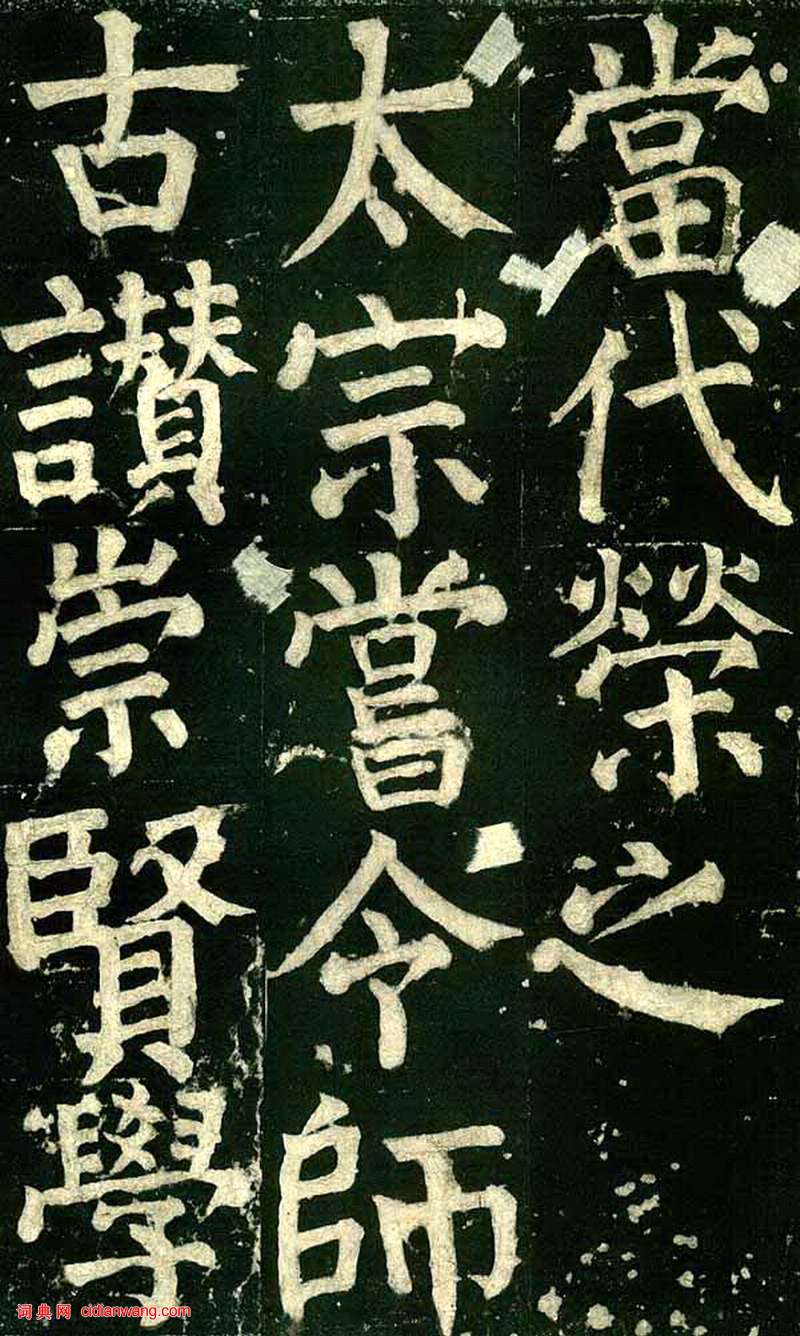 當代榮之
太宗嘗令師
古讃崇賢學
词典网 cidianwang.com